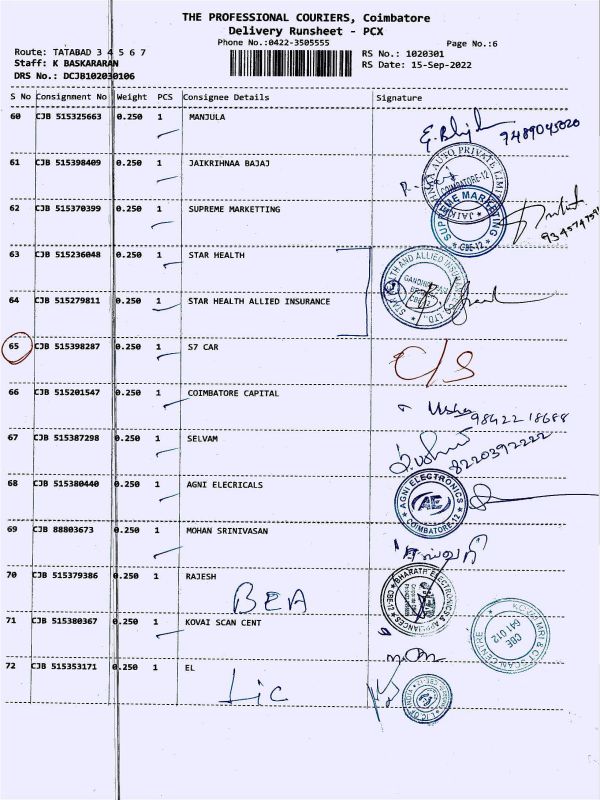 THE PROFESSIONAL COURIERS, Coimbatore
Delivery Runsheet - PCX
Phone No.:0422-3505555
Page No.:6
Route: TATABAD 3 4 5 6 7
RS No.: 1020301
Staff: K BASKARARAN
RS Date: 15-Sep-2022
DRS No.: DCJB102030106
S No Consignment No Weight PCS Consignee Details Signature
60 CJB 515325663 0.250 1 MANJULA
9489045020
61 CJB 515398409 0.250 1 JAIKRIHNAA BAJAJ
AUTO PRIVATE LIMI
COIMBATORE-12
62 CJB 515370399 0.250 1 SUPREME MARKETTING
SUPREME MARKETING
CBE-12
63 CJB 515236048 0.250 1 STAR HEALTH
STAR HEALTH AND ALLIED INSURANCE CO. LTD.,
64 CJB 515279811 0.250 1 STAR HEALTH ALLIED INSURANCE
65 CJB 515398287 0.250 1 S7 CAR
C/S
66 CJB 515201547 0.250 1 COIMBATORE CAPITAL
Usha
98422 18688
67 CJB 515387298 0.250 1 SELVAM
8220392222
68 CJB 515380440 0.250 1 AGNI ELECRICALS
AGNI ELECTRONICS
AE
COIMBATORE-12
69 CJB 88803673 0.250 1 MOHAN SRINIVASAN
70 CJB 515379386 0.250 1 RAJESH
BEA
BHARATH ELECTRONICS & APPLIANCES
CBE-12
71 CJB 515380367 0.250 1 KOVAI SCAN CENT
KOVAI MRI & CT SCAN CENTRE
CBE
641 012
72 CJB 515353171 0.250 1 EL
Lic